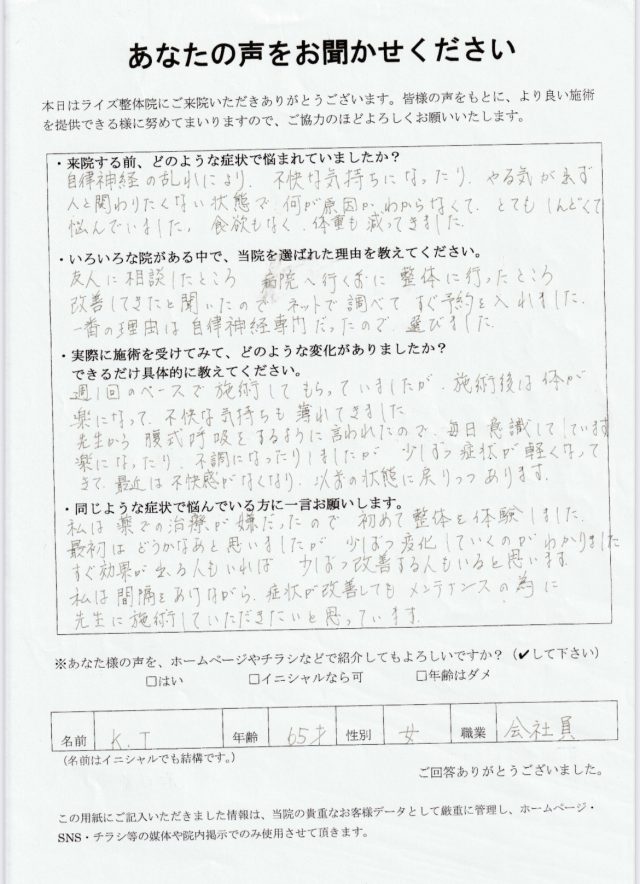 あなたの声をお聞かせください
本日はライズ整体院にご来院いただきありがとうございます。皆様の声をもとに、より良い施術
を提供できる様に努めてまいりますので、ご協力のほどよろしくお願いいたします。
・来院する前、どのような症状で悩まれていましたか？
自律神経の乱れにより、不快な気持ちになったり、やる気が出ず
人と関わりたくない状態で、何が原因か、わからなくて、とてもしんどくて
悩んでいました。食欲もなく、体重も減ってきました。
・いろいろな院がある中で、当院を選ばれた理由を教えてください。
友人に相談したところ 病院へ行くおに 整体に行ったところ
改善してきたと聞いたので、ネットで調べて すぐ予約を入れました。
一番の理由は自律神経専門だったので、選びました。
・実際に施術を受けてみて、どのような変化がありましたか？
できるだけ具体的に教えてください。
週1回のペースで施術してもらっていましたが、施術後は体が
楽になって、不快な気持ちも薄れてきました
先生から腹式呼吸をするように言われたので、毎日意識してしています
楽になったり、不調になったりしましたが 少しずつ症状が軽くなって
きて、最近は不快感がなくなり、以前の状態に戻りつつあります。
・同じような症状で悩んでいる方に一言お願いします。
私は薬での治療が嫌だったので 初めて整体を体験しました。
最初はどうかなあと思いましたが 少しずつ変化していくのがわかりました
すぐ効果が出る人もいれば 少しずつ改善する人もいると思います
私は間隔をあけながら、症状が改善してもメンテナンスの為に
先生に施術していただきたいと思っています。
※あなた様の声を、ホームページやチラシなどで紹介してもよろしいですか？（✔して下さい）
□はい □イニシャルなら可 □年齢はダメ
名前 K.I 年齢 65才 性別 女 職業 会社員
（名前はイニシャルでも結構です。）
ご回答ありがとうございました。
この用紙にご記入いただきました情報は、当院の貴重なお客様データとして厳重に管理し、ホームページ・
SNS・チラシ等の媒体や院内掲示でのみ使用させて頂きます。